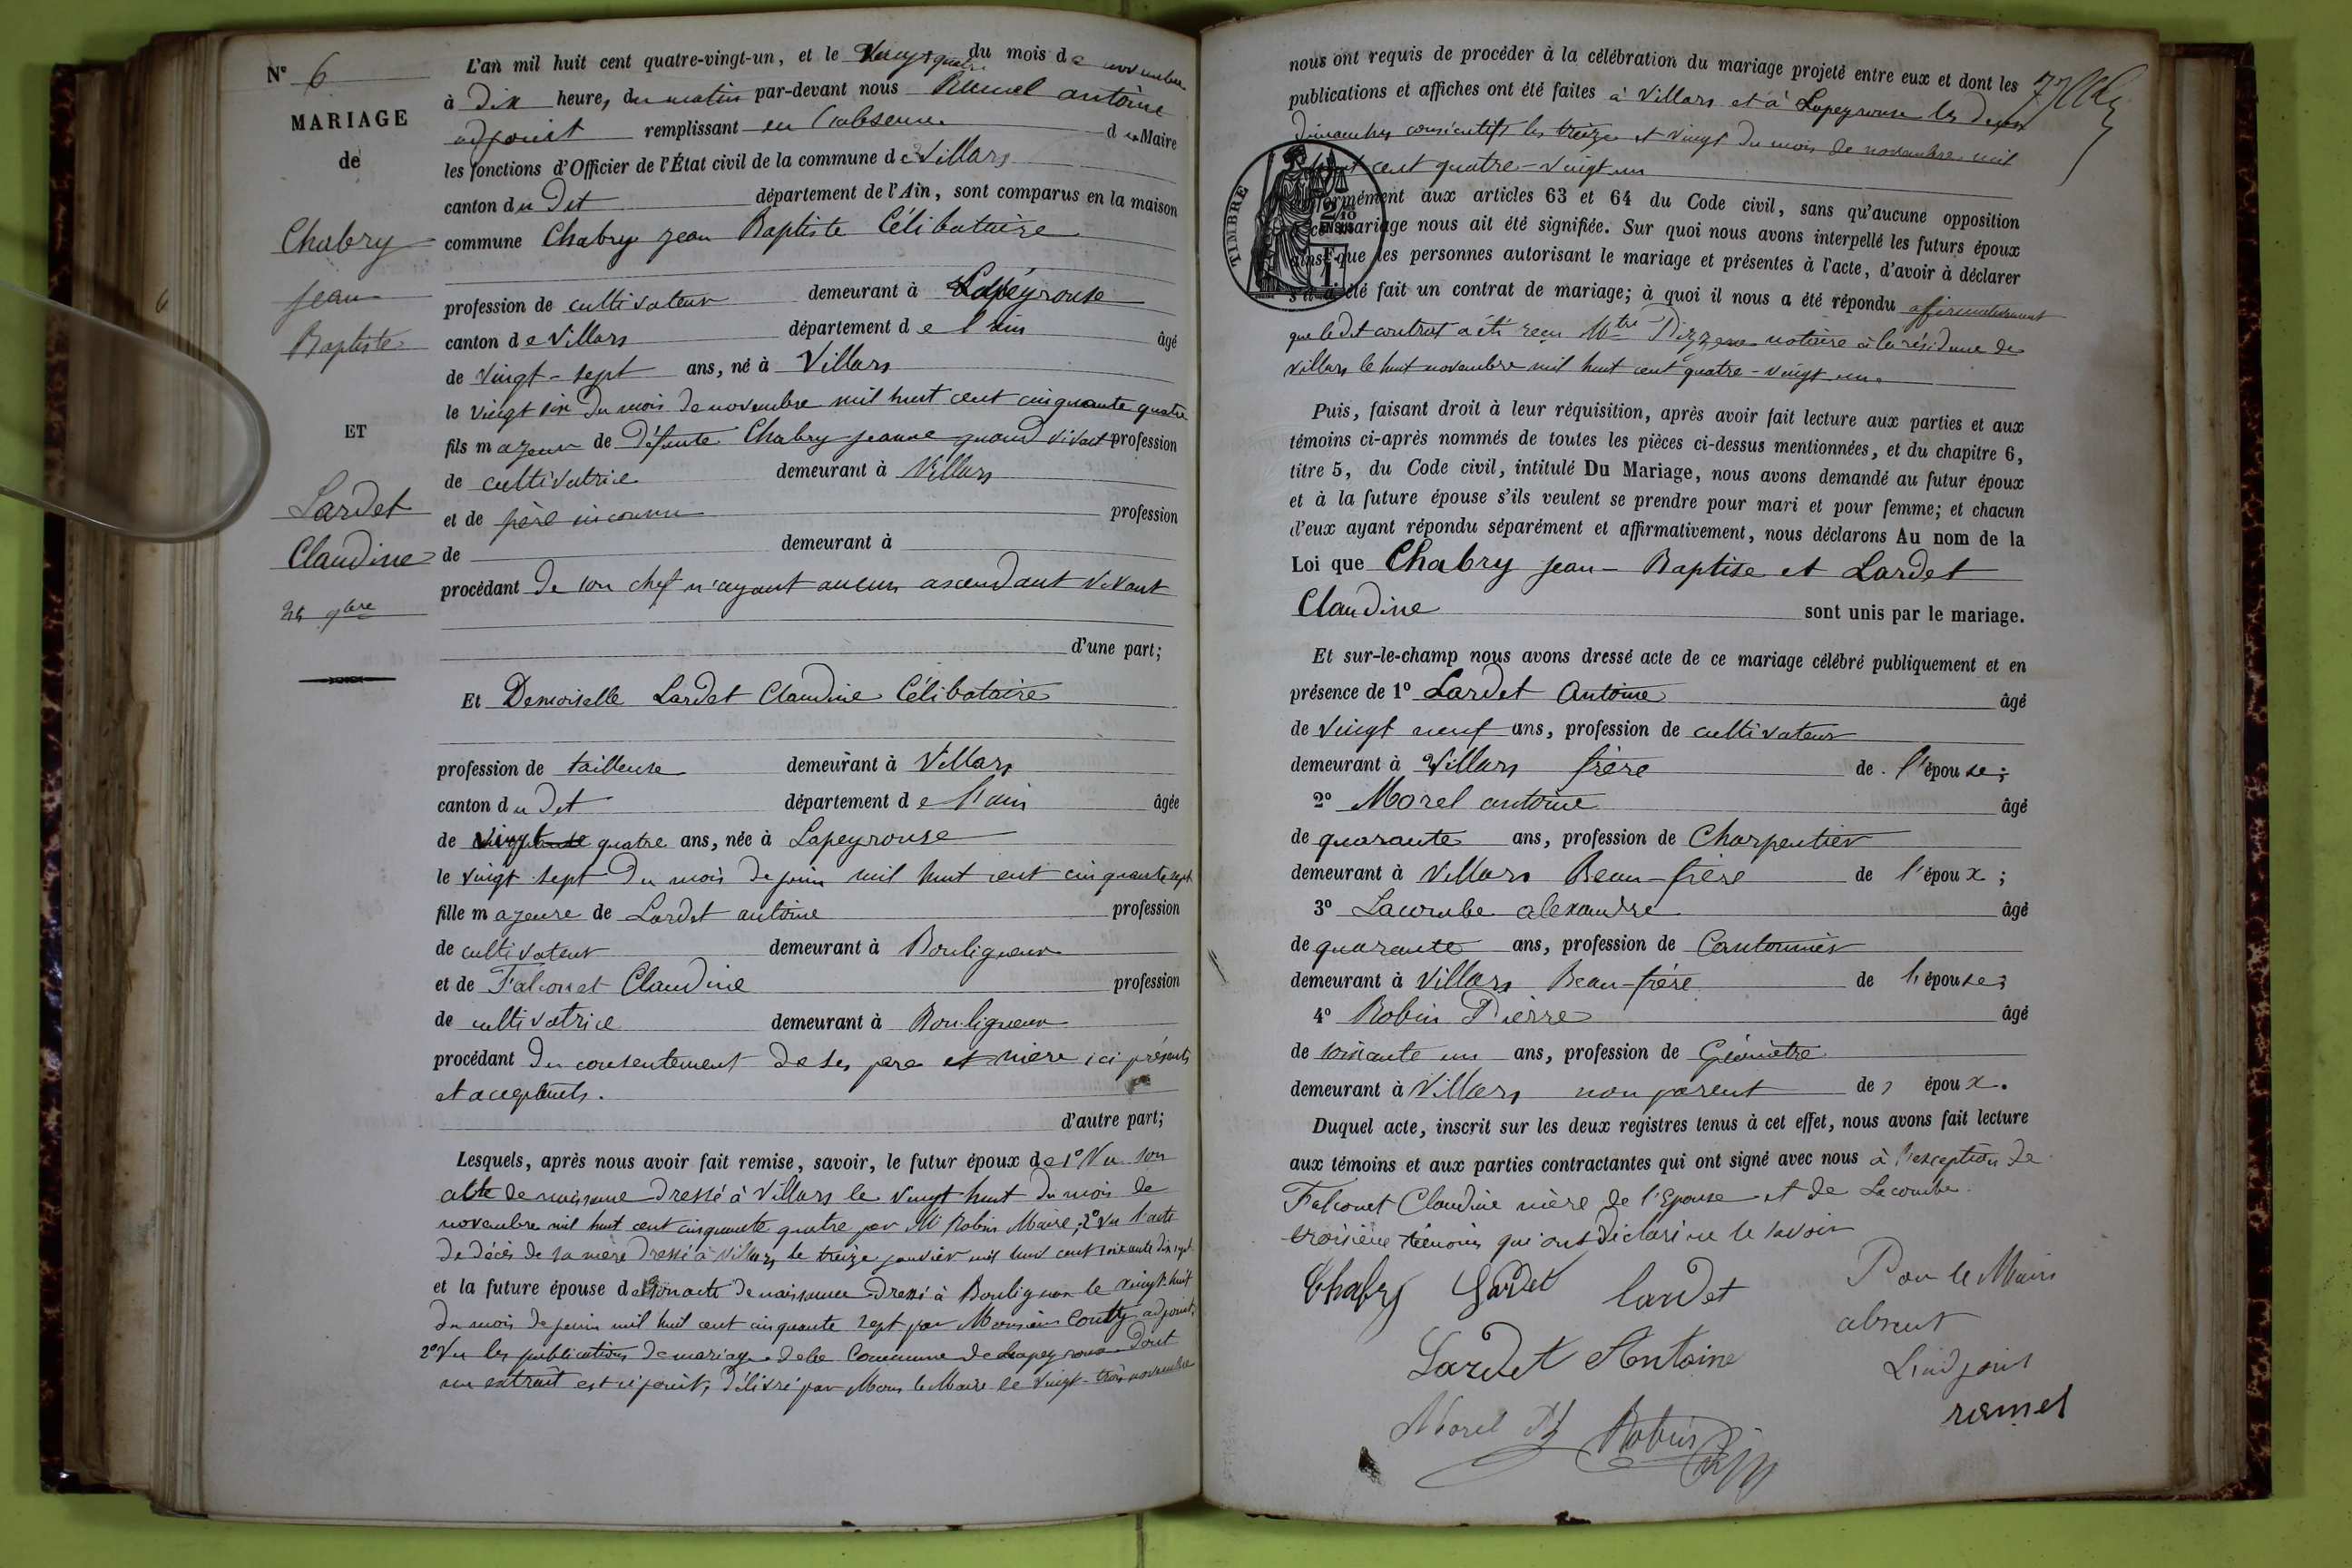 N° 6
MARIAGE
de
Chabry
Jean
Baptiste
ET
Lardet
Claudine
24 9bre
L'an mil huit cent quatre-vingt-un, et le vingt quatre du mois de novembre
à dix heure, du matin par-devant nous Ramel antoine
adjoint remplissant en l'absence du Maire
les fonctions d'Officier de l'État civil de la commune de Villars
canton du dit département de l'Ain, sont comparus en la maison
commune Chabry jean Baptiste Célibataire
profession de cultivateur demeurant à Lapeyrouse
canton de Villars département de l'ain âgé
de vingt-sept ans, né à Villars
le vingt six du mois de novembre mil huit cent cinquante quatre
fils majeur de défunte Chabry jeanne quand vivait profession
de cultivatrice demeurant à Villars
et de père inconnu profession
de demeurant à
procédant de son chef n'ayant aucun ascendant vivant
d'une part;
Et Demoiselle Lardet Claudine Célibataire
profession de tailleuse demeurant à Villars
canton du dit département de l'ain âgée
de vingt quatre ans, née à Lapeyrouse
le vingt sept du mois de juin mil huit cent cinquante sept
fille majeure de Lardet antoine profession
de cultivateur demeurant à Bouligneux
et de Falconet Claudine profession
de cultivatrice demeurant à Bouligneux
procédant du consentement de ses père et mère ici présents
et acceptants.
d'autre part;
Lesquels, après nous avoir fait remise, savoir, le futur époux de 1° Vu son
acte de naissance dressé à Villars le vingt huit du mois de
novembre mil huit cent cinquante quatre par Mr Robin Maire, 2° vu l'acte
de décès de sa mère dressé à Villars le treize janvier mil huit cent soixante dix sept
et la future épouse de son acte de naissance dressé à Bouligneux le vingt-huit
du mois de juin mil huit cent cinquante sept par Monsieur Coutty adjoint,
2° Vu les publications de mariage de la Commune de Lapeyrouse dont
un extrait est ci joint, délivré par Mons le Maire le vingt-trois novembre
nous ont requis de procéder à la célébration du mariage projeté entre eux et dont les
publications et affiches ont été faites à Villars et à Lapeyrouse les deux
dimanches consécutifs les treize et vingt du mois de novembre mil
huit cent quatre-vingt un
TIMBRE
conformément aux articles 63 et 64 du Code civil, sans qu'aucune opposition
à ce mariage nous ait été signifiée. Sur quoi nous avons interpellé les futurs époux
ainsi que les personnes autorisant le mariage et présentes à l'acte, d'avoir à déclarer
s'il a été fait un contrat de mariage; à quoi il nous a été répondu affirmativement
que le dit contrat a été reçu Mtre notaire à la résidence de
Villars le huit novembre mil huit cent quatre-vingt un.
Puis, faisant droit à leur réquisition, après avoir fait lecture aux parties et aux
témoins ci-après nommés de toutes les pièces ci-dessus mentionnées, et du chapitre 6,
titre 5, du Code civil, intitulé Du Mariage, nous avons demandé au futur époux
et à la future épouse s'ils veulent se prendre pour mari et pour femme; et chacun
d'eux ayant répondu séparément et affirmativement, nous déclarons Au nom de la
Loi que Chabry jean-Baptise et Lardet
Claudine sont unis par le mariage.
Et sur-le-champ nous avons dressé acte de ce mariage célébré publiquement et en
présence de 1° Lardet Antoine âgé
de vingt neuf ans, profession de cultivateur
demeurant à Villars frère de l'épouse;
2° Morel antoine âgé
de quarante ans, profession de Charpentier
demeurant à Villars Beau-frère de l'époux;
3° Lacombe alexandre âgé
de quarante ans, profession de Cantonnier
demeurant à Villars Beau-frère de l'épouse;
4° Robin Pierre âgé
de soixante un ans, profession de Géomètre
demeurant à Villars non parent de s époux.
Duquel acte, inscrit sur les deux registres tenus à cet effet, nous avons fait lecture
aux témoins et aux parties contractantes qui ont signé avec nous à l'exception de
Falconet Claudine mère de l'Epouse et de Lacombe
troisième témoin qui ont déclaré ne le savoir
Chabry Lardet Lardet
Pour le Maire
absent
L'adjoint
ramel
Lardet Antoine
Morel
Robin